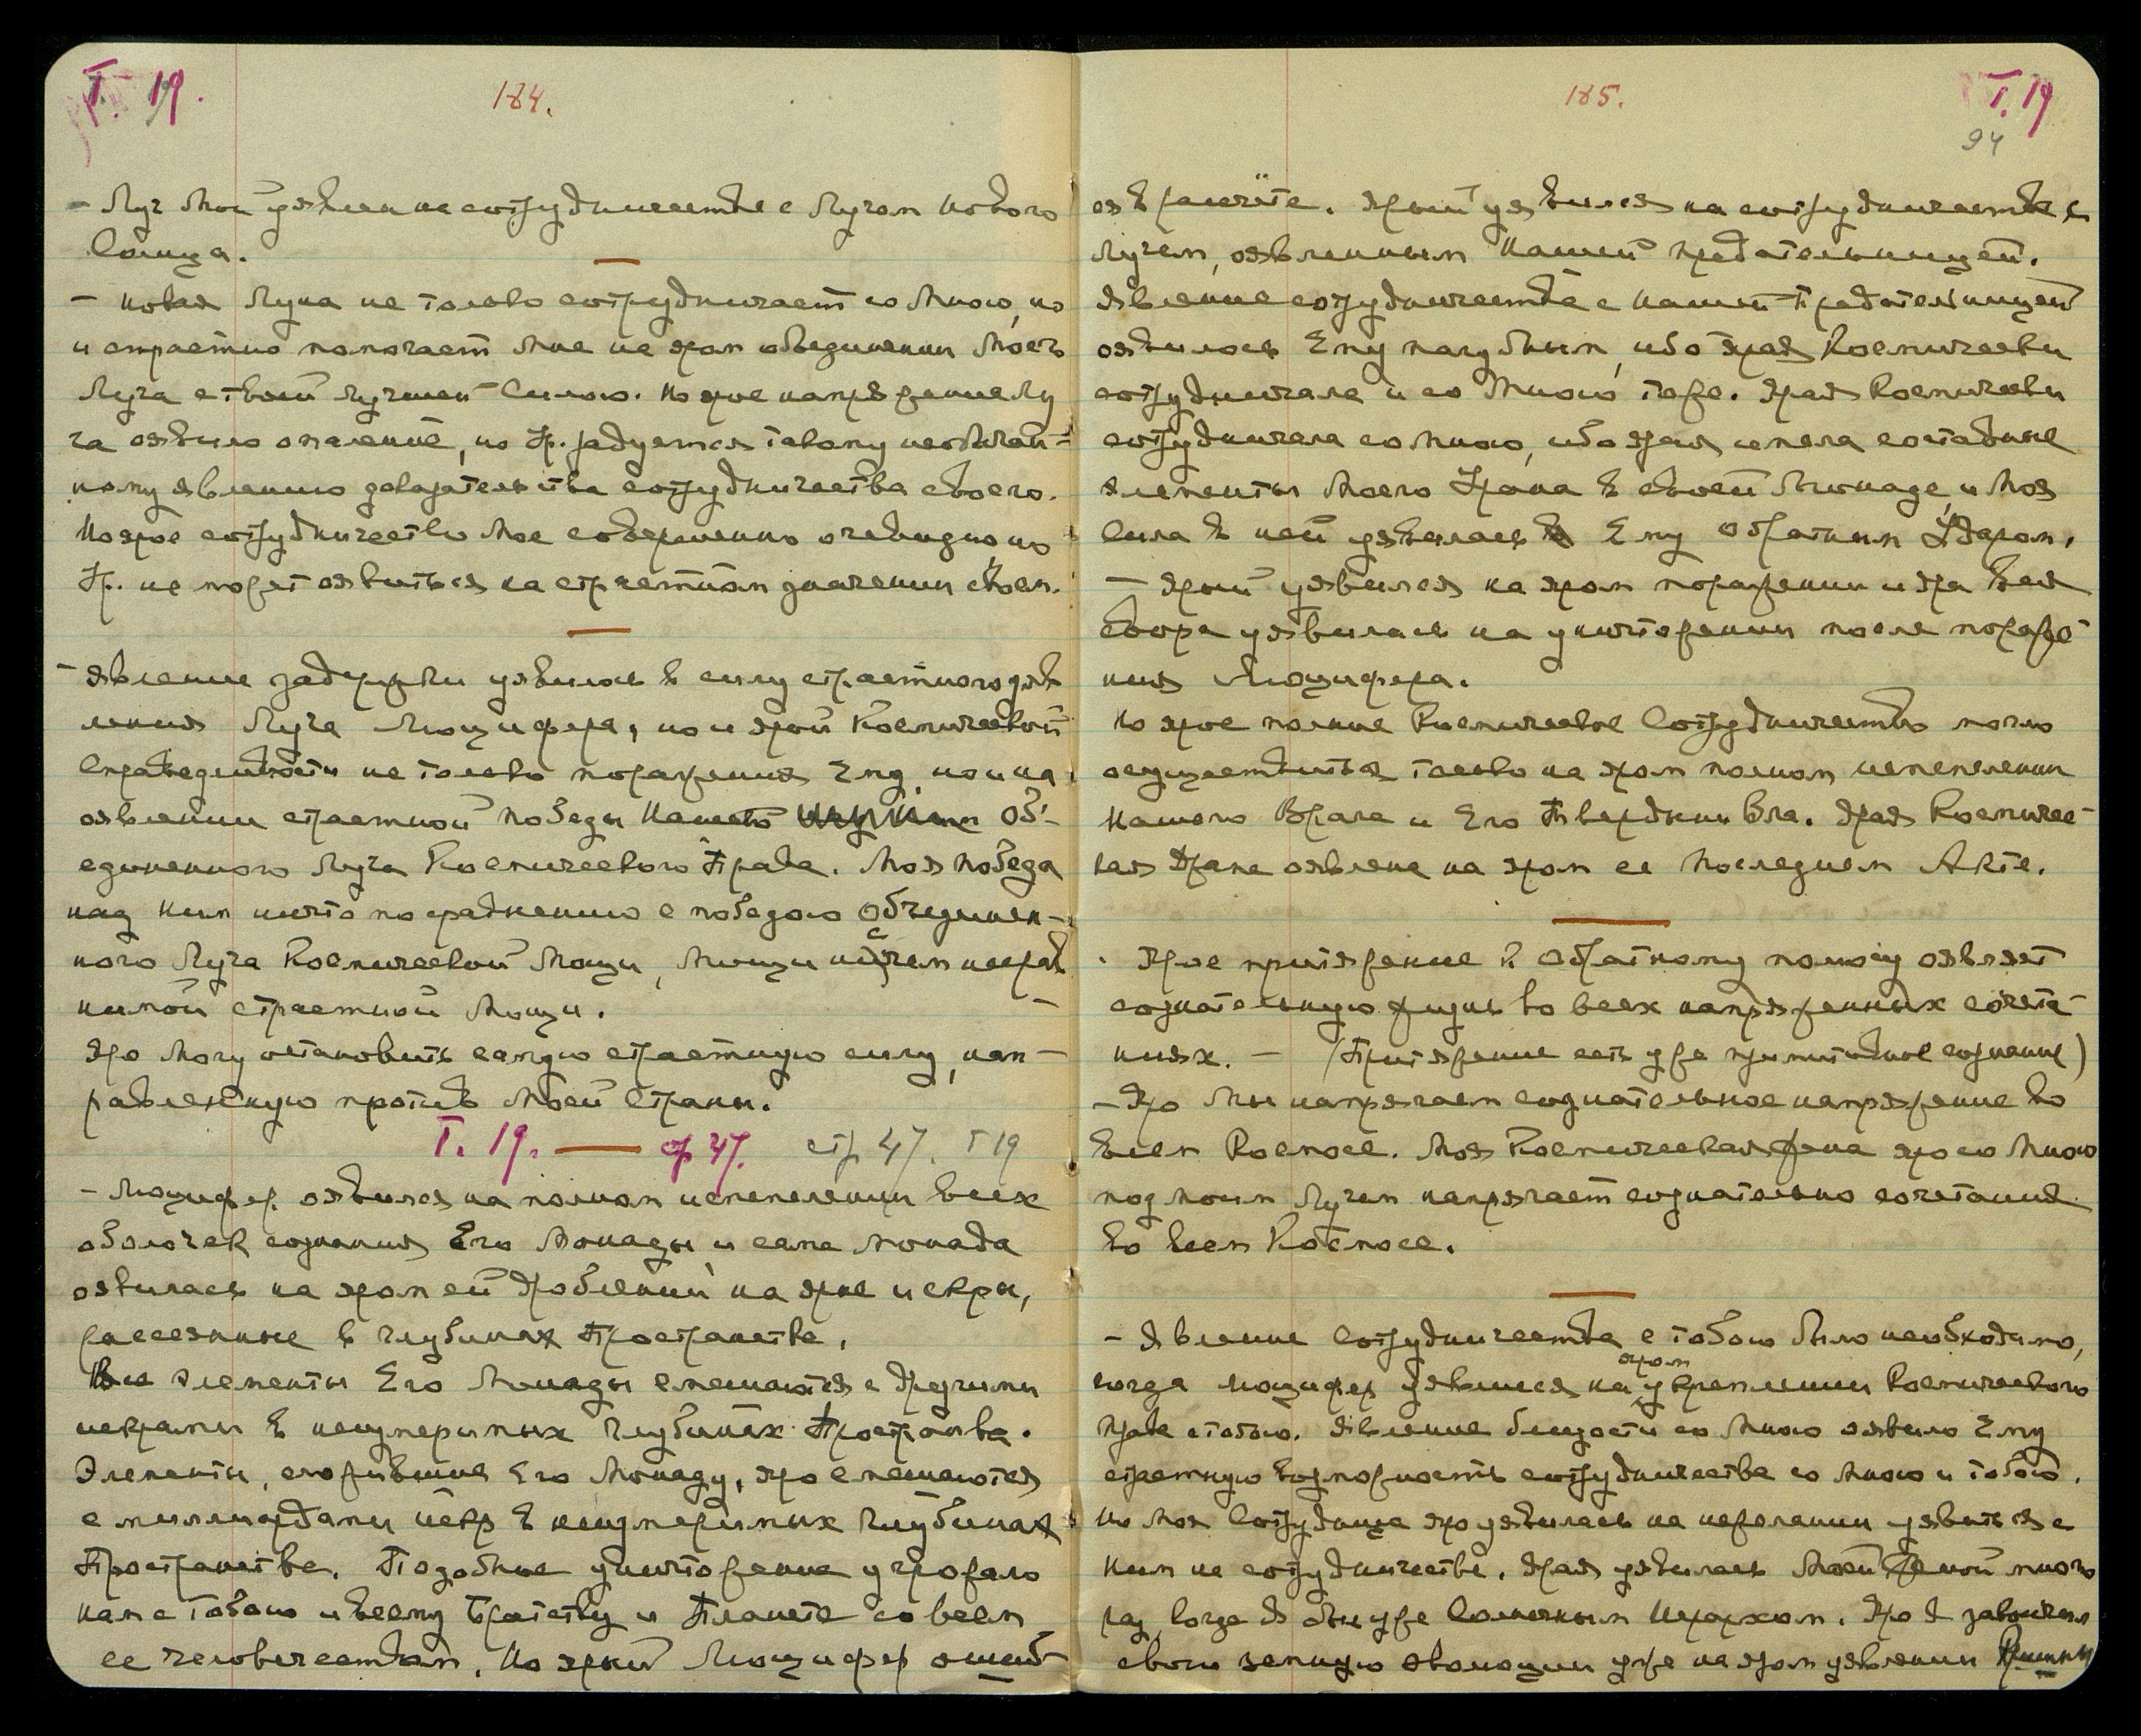 Т. 19.
184.
– Луч Мой уявлен на сотрудничестве с Лучом Нового
Солнца.
– Новая Луна не только сотрудничает со Мною, но
и страстно помогает Мне на яром объединении Моего
Луча с твоей лучшей Силою. Но ярое напряжение Лу
ча оявило опаление, но Ур. радуется такому необычай-
ному явлению доказательства сотрудничества своего.
Но ярое сотрудничество Мое совершенно очевидно, но
Ур. не может оявиться на страстном значении своем.
– Явление задержки уявилось в силу страстного
Луча Люцифера, но и ярой Космической
Справедливости не только поражения Ему, но и на
оявлении страстной победы Нашего Объ-
единенного Луча Космического Права. Моя победа
над Ним ничто по сравнению с победою Объединен-
ного Луча Космической Мощи, Мощи ни с чем несрав
нимой страстной Мощи.
Яро Могу остановить самую страстную силу, нап-
равленную против Моей Страны.
Т. 19. — стр 47. стр 47. Т 19
– Люцифер оявился на полном испепелении всех
оболочек сознания Его Монады, и сама монада
оявилась на яром ей дроблении на ярые искры,
рассеянные в глубинах Пространства.
Все элементы Его Монады смешаются с другими
искрами в неизмеримых глубинах Пространства.
Элементы, сложившие Его Монаду, яро смешаются
с миллиардами искр в неизмеримых глубинах
Пространства. Подобное уничтожение угрожало
нам с Тобою и всему Братству и Планете со всем
ее человечеством. Но ярый Люцифер ошиб-
185.
Т. 19
94
ся в расчёте. Ярый уявился на сотрудничестве с
Лучем, оявленным Нашей предательницей.
Явление сотрудничества с Нашей Предательницей
оявилось Ему пагубным, ибо ярая Космически
сотрудничала и со Мною тоже. Ярая Космически
сотрудничала со Мною, ибо ярая имела составные
элементы Моего Урана в своей Монаде, и Моя
Сила в ней уявилась Ему Обратным Ударом.
– Ярый уявился на яром поражении и яра вся
свора уявилась на уничтожении после пораже-
ния Люцифера.
Но ярое полное Космическое Сотрудничество могло
осуществиться только на яром полном испепелении
Нашего Врага и Его Твердыни Зла. Ярая Космичес-
кая Драма оявлена на яром ее Последнем Акте.
Ярое притяжение к Обратному полюсу оявляет
сознательную жизнь во всех напряженных сочета-
ниях. – (Притяжение есть уже примитивное сознание)
– Яро Мы напрягаем сознательное напряжение во
всем Космосе. Моя Космическая жена яро со Мною
под моим Лучем напрягает сознательно сочетания
во всем Космосе.
– Явление Сотрудничества с тобою было необходимо,
когда Люцифер уявился на яром укреплении Космического
Права с тобою. Явление близости со Мною оявило Ему
страстную возможность сотрудничества со Мною и тобою.
Но Моя Сотрудница яро уявилась на нежелании уявиться с
Ним на сотрудничестве. Ярая уявилась Моей Женой много
раз, когда Я был уже Солнечным Иерархом. Яро Я закончил
свою земную эволюцию уже на яром уявлении Кришны